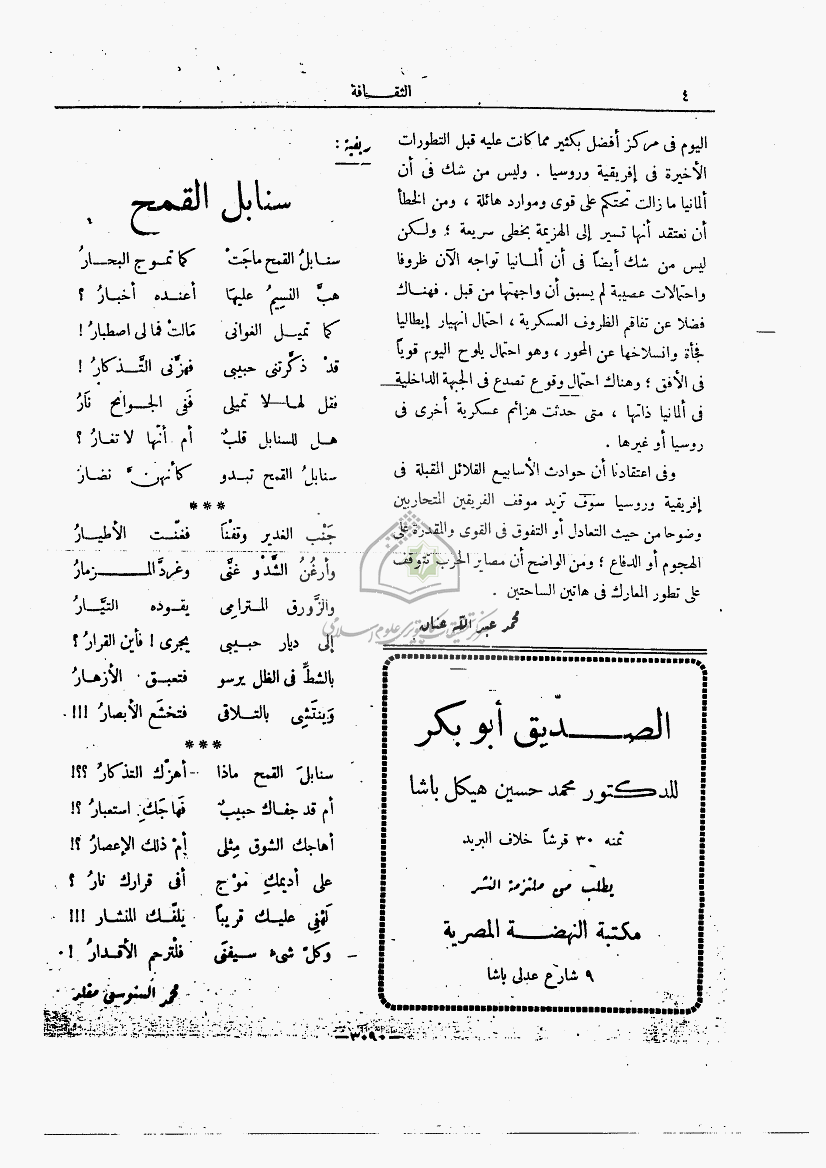 ٤
الثقافة
اليوم فى مركز أفضل بكثير مما كانت عليه قبل التطورات
الأخيرة فى إفريقية وروسيا . وليس من شك فى أن
ألمانيا ما زالت تحتكم على قوى وموارد هائلة ، ومن الخطأ
أن نعتقد أنها تسير إلى الهزيمة بخطى سريعة ؛ ولكن
ليس من شك أيضاً فى أن ألمانيا تواجه الآن ظروفا
واحتمالات عصيبة لم يسبق أن واجهتها من قبل . فهناك
فضلا عن تفاقم الظروف العسكرية ، احتمال انهيار إيطاليا
فجأة وانسلاخها عن المحور ، وهو احتمال يلوح اليوم قوياً
فى الأفق ؛ وهناك احتمال وقوع تصدع فى الجبهة الداخلية
فى ألمانيا ذاتها ، متى حدثت هزائم عسكرية أخرى فى
روسيا أو غيرها .
وفى اعتقادنا أن حوادث الأسابيع القلائل المقبلة فى
إفريقية وروسيا سوف تزيد موقف الفريقين المتحاربين
وضوحا من حيث التعادل أو التفوق فى القوى والمقدرة على
الهجوم أو الدفاع ؛ ومن الواضح أن مصاير الحرب تتوقف
على تطور المعارك فى هاتين الساحتين .
محمد عبد الله عنان
الصدّيق أبو بكر
للدكتور محمد حسين هيكل باشا
ثمنه ٣٠ قرشاً خلاف البريد
يطلب من ملتزمة النشر
مكتبة النهضة المصرية
٩ شارع عدلى باشا
ريفية :
سنابل القمح
سنابلُ القمح ماجَتْ كما تموج البحارُ
هبَّ النسيمُ عليها أعنده أخبارُ ؟
كما تميل الغوانى مَالتْ فما لى اصطبارُ !
قدْ ذكَّرتنى حبيبى فهزَّنى التَّذكارُ !
فقل لها لا تميلى فَفى الجوانح نَارُ
هل للسنابل قلبٌ أم أنّها لا تغارُ ؟
سنابلُ القمح تبدو كأنهنّ نضارُ
***
جَنْب الغدير وقفْنا فغنّت الأطيارُ
وأرغُنُ الشَّدْو غنَّى وغردَ المزمارُ
والزَّورق المترامِى يقوده التيَّارُ
إلى ديار حبيبى يجرى ! فأين القرارُ ؟
بالشطِّ فى الظل يرسو فتعبق الأزهارُ
وَينتَشِى بالتلاقى فتخشَع الأبصارُ !!! .
***
سنابلَ القمح ماذا أهزّك التذكارُ ؟؟!
أم قد جفاك حبيبٌ فَهاجَكِ استعبارُ ؟!
أهاجك الشوق مِثلى أمْ ذلك الإعصارُ ؟!
على أديمكِ مَوْج أفى قرارك نارُ ؟
لَهْفِى عليك قريباً يَلقّك المنشار !!!
وكلّ شىء سيفنَى فلْترحم الأقدارُ ! .
محمد السنوسى مقلد
— ٣٠٩٠ —
مركز تحقیقات کامپیوتری علوم اسلامی